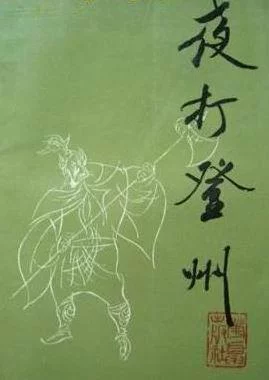 夜打登州